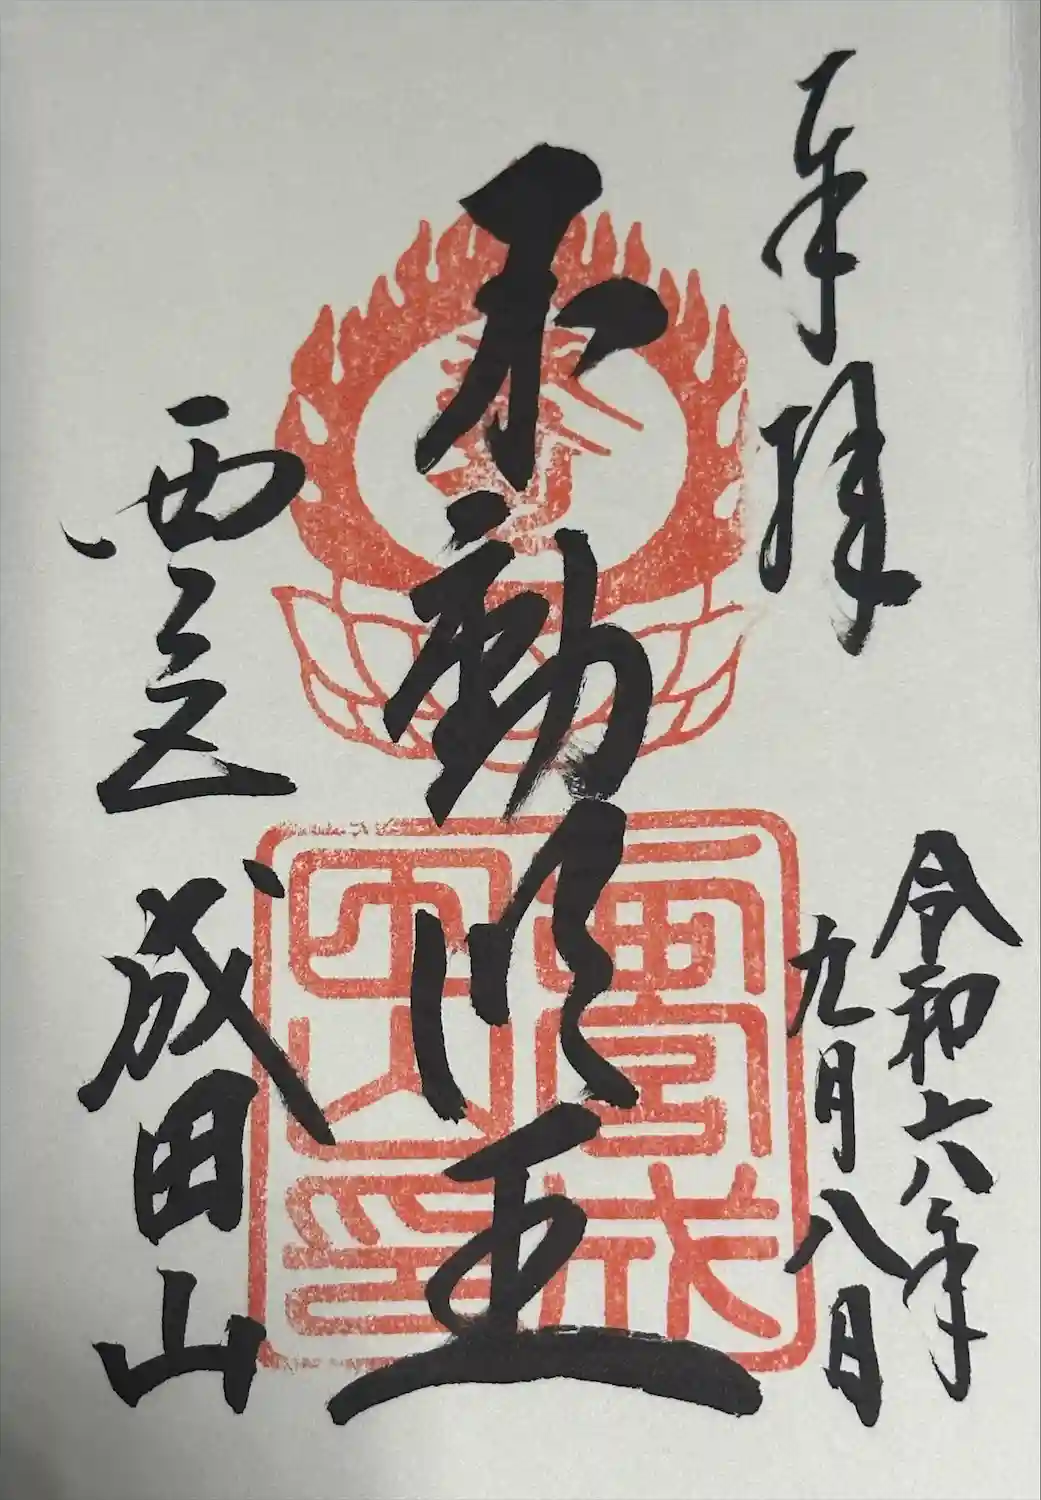 奉拝
令和六年
九月八日
不動明王
成田山